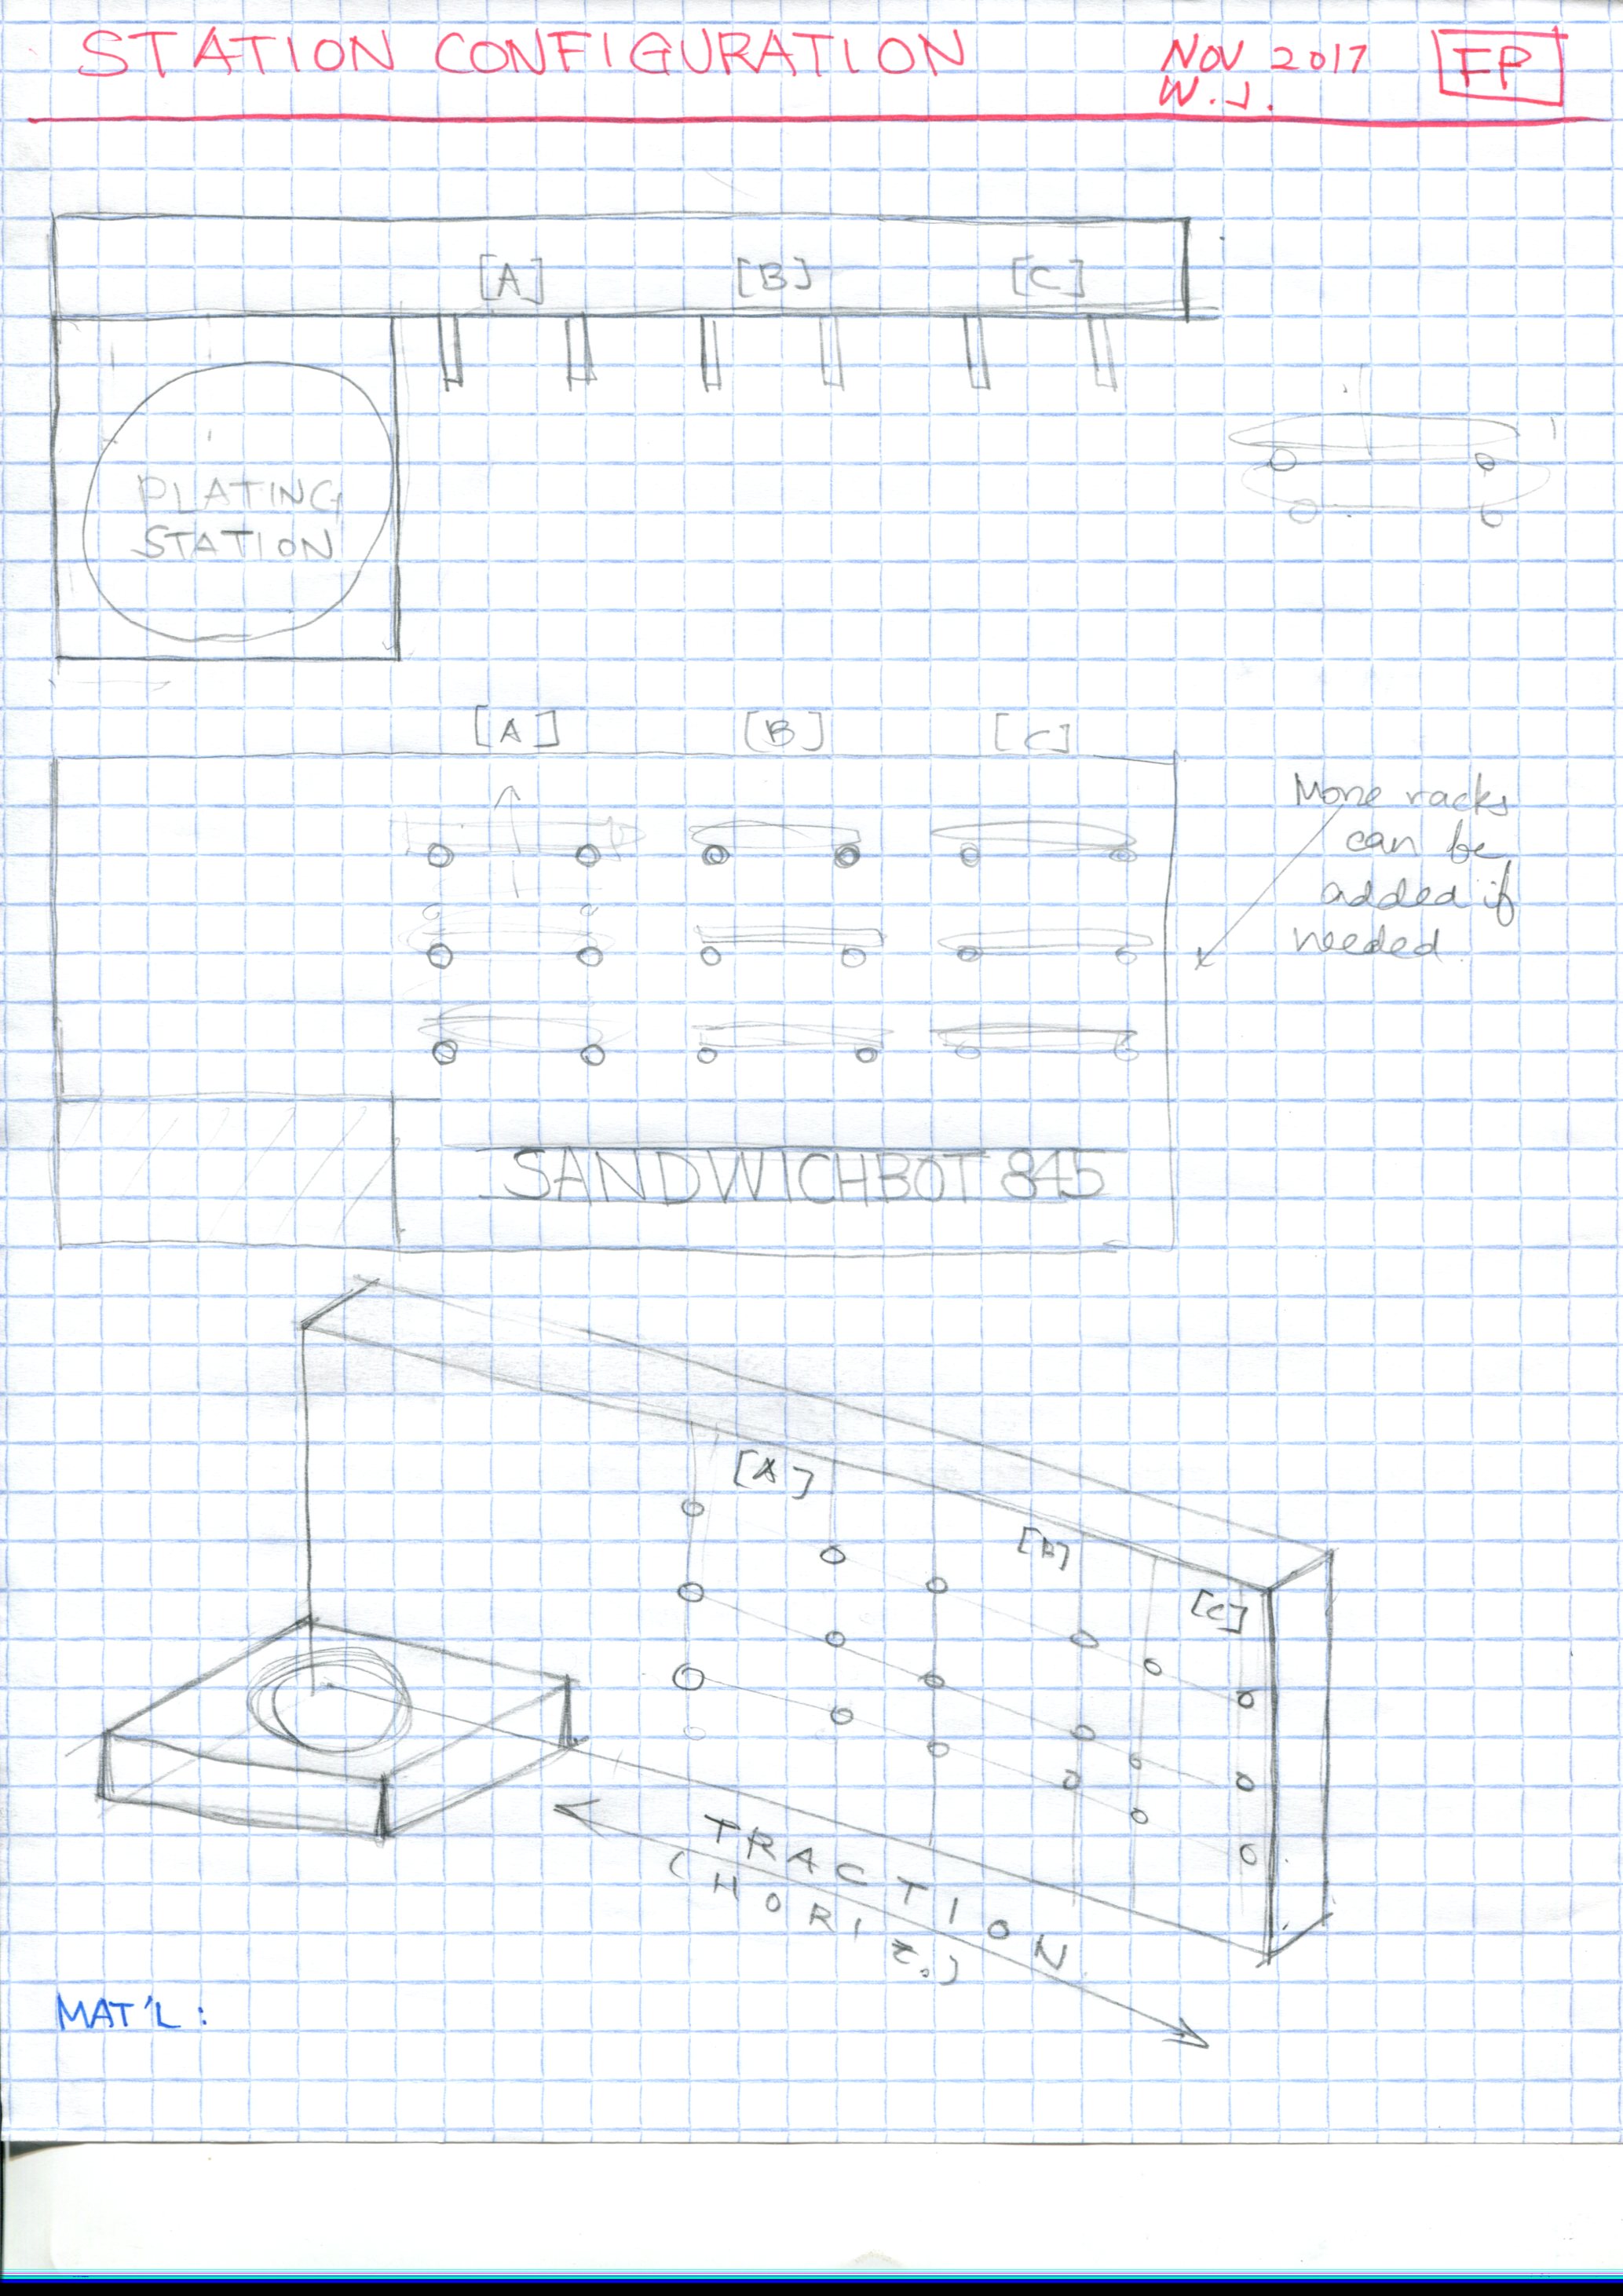 STATION CONFIGURATION
NOV 2017
W.J.
FP
[A]
[B]
[C]
PLATING
STATION
[A]
[B]
[C]
More racks
can be
added if
needed.
SANDWICHBOT 845
[A]
[B]
[C]
TRACTION
(HORIZ.)
MAT'L: